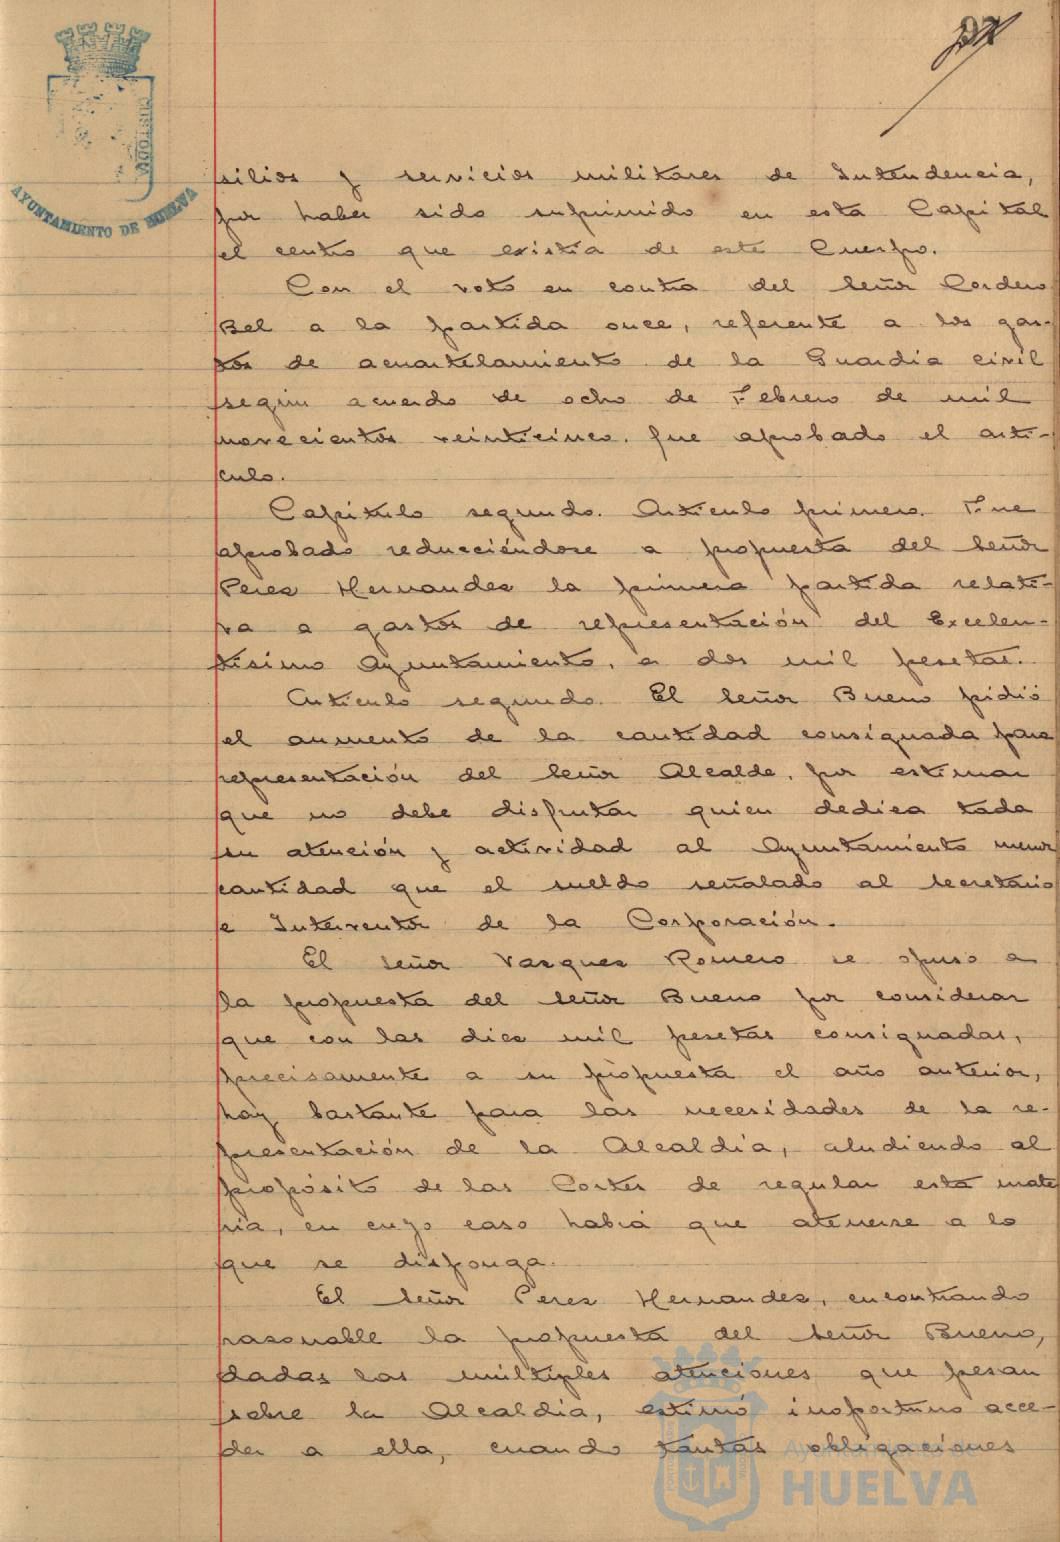 AYUNTAMIENTO DE HUELVA
CUSTODIA
silios y servicios militares de Intendencia,
por haber sido suprimido en esta Capital
el centro que existia de este Cuerpo.
Con el voto en contra del Señor Cordero
Bel a la partida once, referente a los gas-
tos de acuartelamiento de la Guardia civil
segun acuerdo de ocho de Febrero de mil
novecientos veinticinco, fue aprobado el arti-
culo.
Capitulo segundo. Articulo primero. Fue
aprobado reducciéndose a propuesta del Señor
Peres Hernandes la primera partida relati-
va a gastos de representación del Excelen-
tisimo Ayuntamiento, a dos mil pesetas.
Articulo segundo. El Señor Bueno pidió
el aumento de la cantidad consignada para
representación del Señor Alcalde, por estimar
que no debe disfrutar quien dedica toda
su atención y actividad al Ayuntamiento menor
cantidad que el sueldo señalado al Secretario
e Interventor de la Corporación.
El señor Vasques Romero se opuso a
la propuesta del Señor Bueno por considerar
que con las dies mil pesetas consignadas,
precisamente a su propuesta el año anterior,
hay bastante para las necesidades de la re-
presentación de la Alcaldia, aludiendo al
propósito de las Cortes de regular esta mate
ria, en cuyo caso habrá que atenerse a lo
que se disponga.
El Señor Peres Hernandes, encontrando
rasonable la propuesta del Señor Bueno,
dadas las multiples atenciones que pesan
sobre la Alcaldia, estimó inoportuno acce-
der a ella, cuando tantas obligaciones
Ayuntamiento de
HUELVA